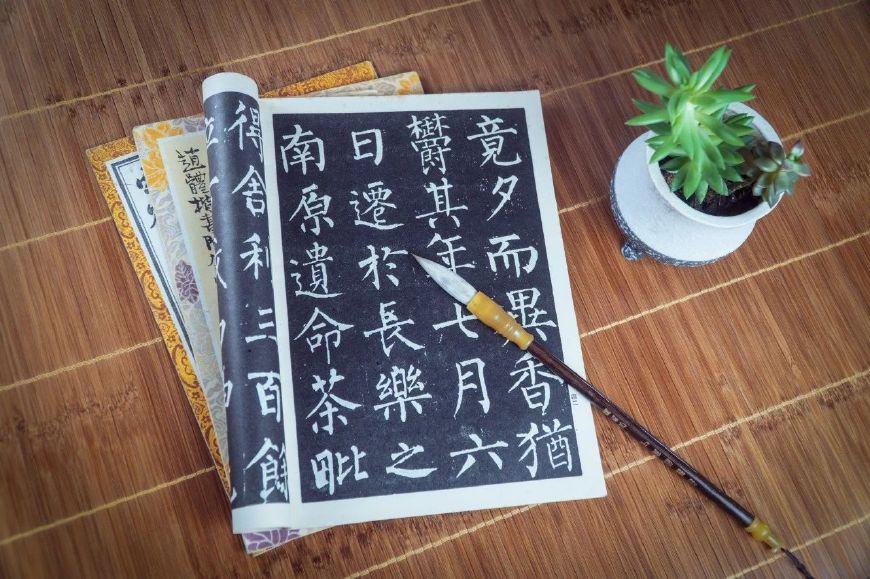 竟夕而異香猶
鬱其年七月六
日遷於長樂之
南原遺命茶毗
得舍利三百餘
趙體楷書